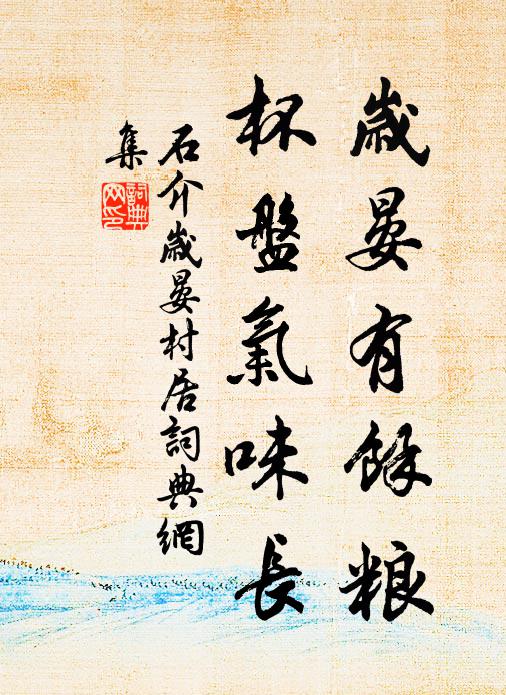 歲晏有餘粮
杯盤氣味長
石介歲晏村居詞典網
集
詞典
网印